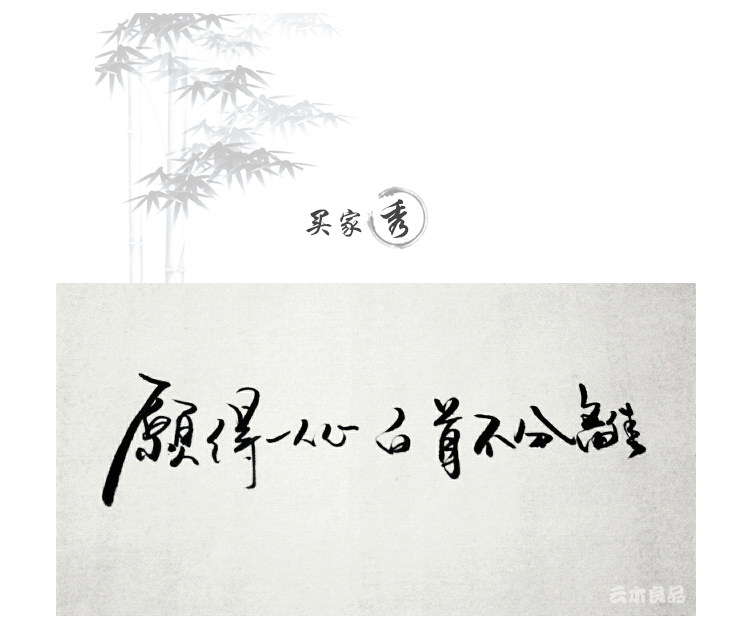 买家秀
願得一人心 白首不分離
云木良品